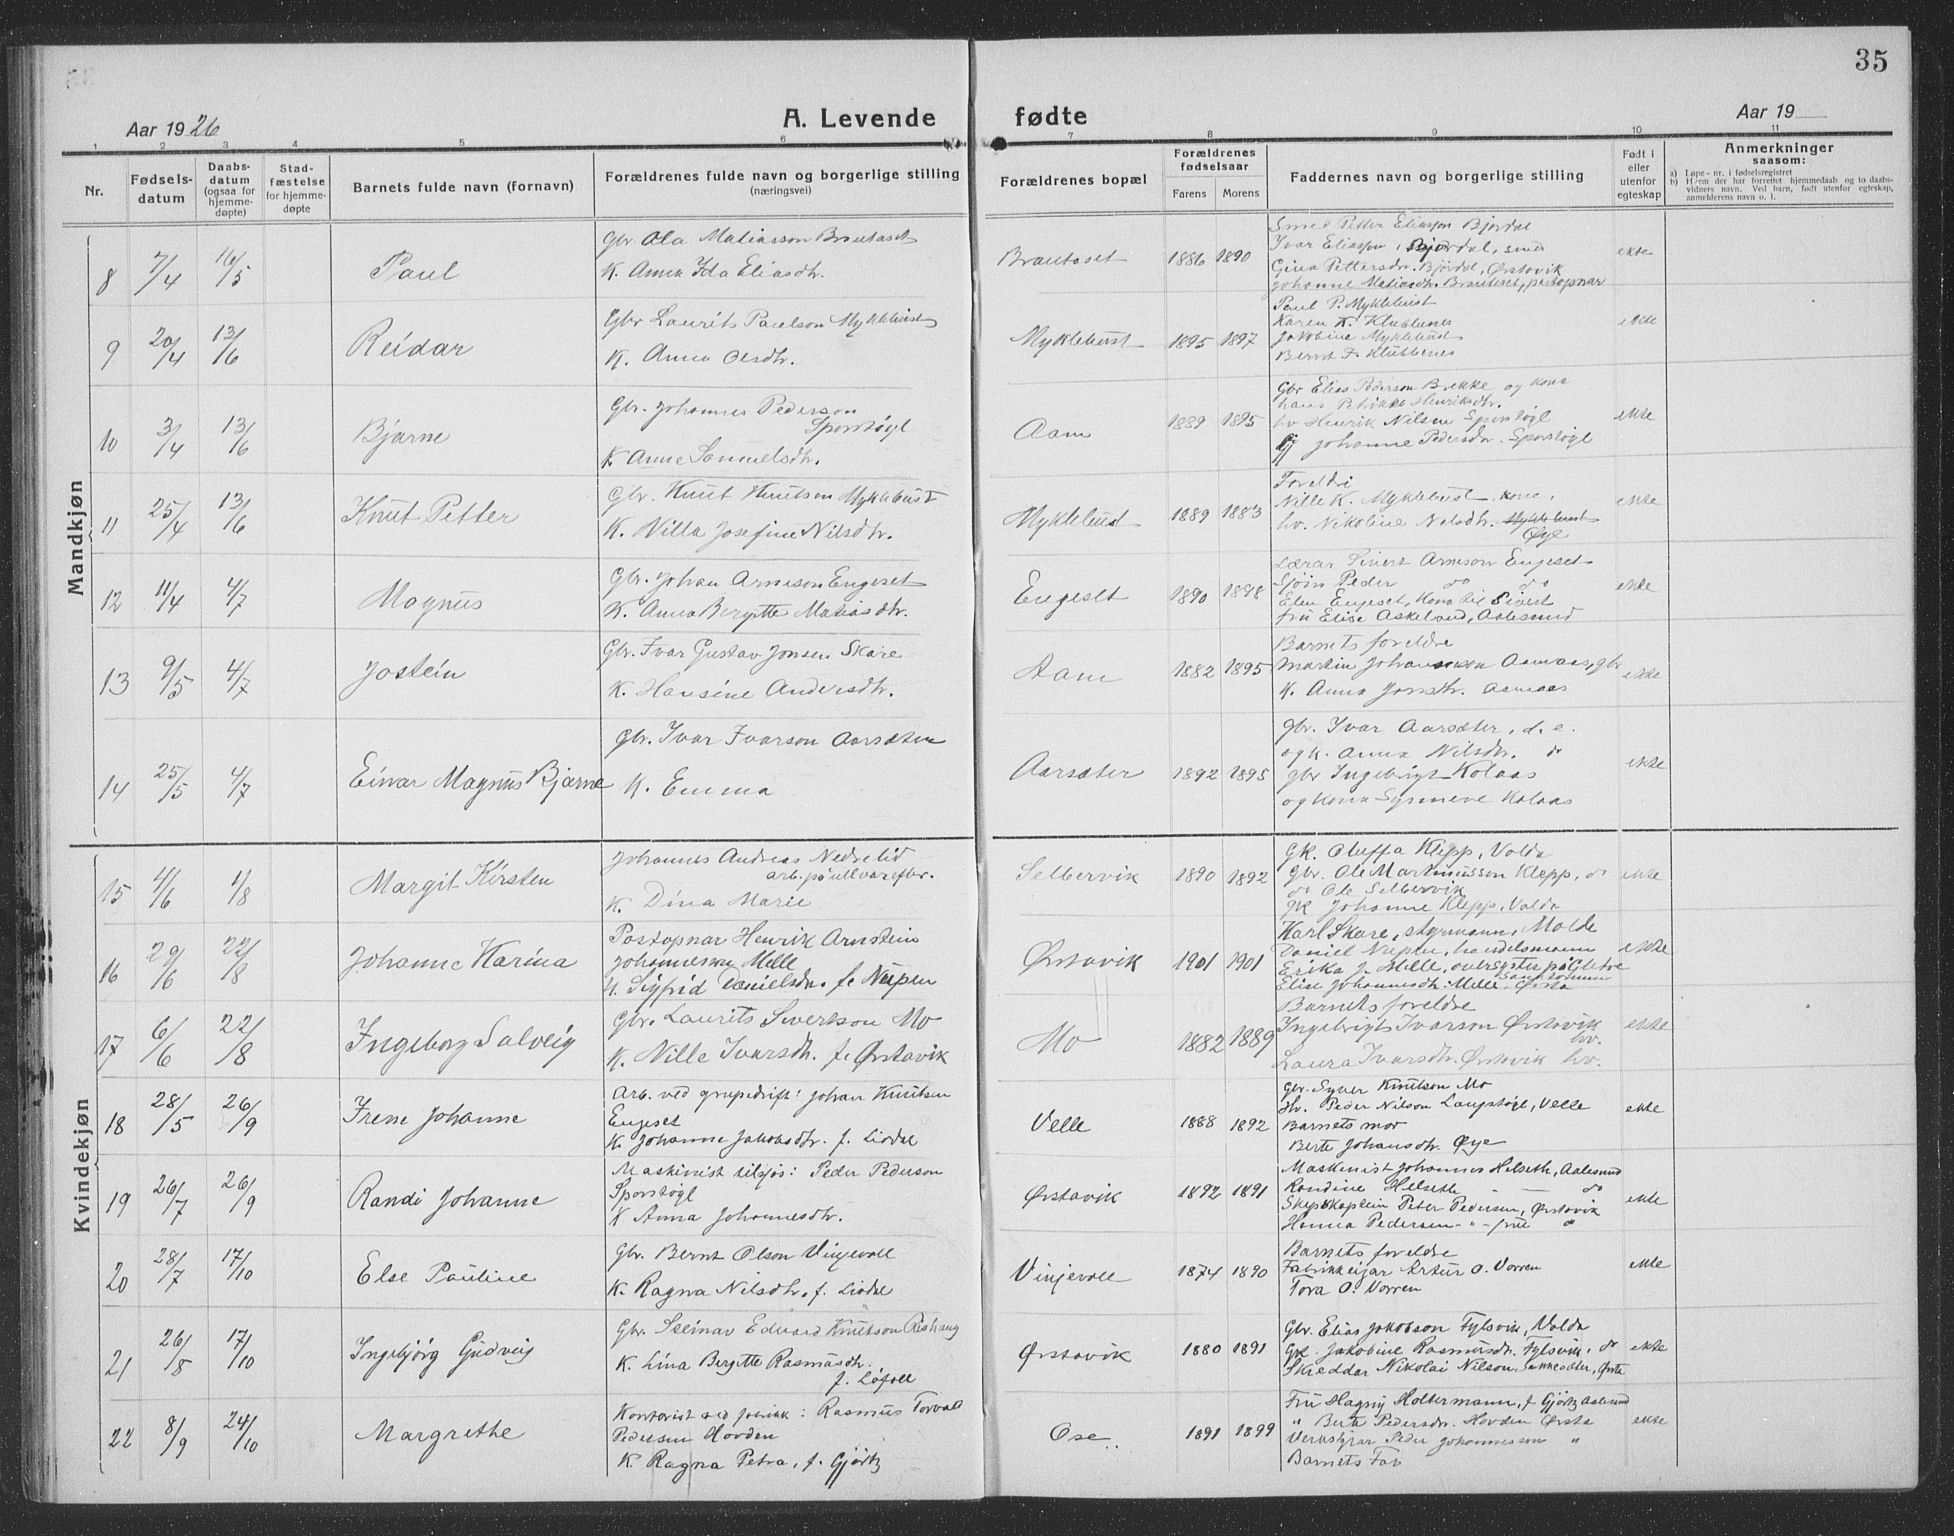 35
Aar 1926
A. Levende
fødte
Aar 19
1 2 3 4 5 6 7 8 9 10 11
Nr.
Fødsels-
datum
Daabs-
datum
(ogsaa for
hjemme-
døpte)
Stad-
fæstelse
for hjemme-
døpte
Barnets fulde navn (fornavn)
Forældrenes fulde navn og borgerlige stilling
(næringsvei)
Forældrenes bopæl
Forældrenes
fødselsaar
Farens Morens
Faddernes navn og borgerlige stilling
Født i
eller
utenfor
egteskap
Anmerkninger
saasom:
a) Løpe-nr. i fødselsregistret
b) Hvem der har forrettet hjemmedaab og to daabs-
vidners navn. Ved barn, født utenfor egteskap,
anmelderens navn o. l.
Mandkjøn
8 7/4 16/5 Paul
Gbr. Ola Matiasson Brautaset
K. Anna Ida Eliasdtr.
Brautaset 1886 1890
Smed Petter Eliasson Bjørdal
Ivar Eliasson, Bjørdal, smed
Gina Pettersdtr. Bjørdal, Ørstavik
Johanne Matiasdtr. Brautaset, postopnar
ekte
9 20/4 13/6 Reidar
Gbr Laurits Paulson Myklebust
K. Anna Olsdtr.
Myklebust 1895 1897
Paul P. Myklebust
Karen K. Klubbenes
Jakobine Myklebust
Bernt J. Klubbenes
ekte
10 3/4 13/6 Bjarne
Gbr. Johannes Pederson
Sporstøyl
K. Anne Samuelsdtr.
Aam 1889 1895
Gbr Elias Pederson Brekke og kona
hans Petrikke Henriksdtr.
hv Henrik Nilsen Sporstøyl
Gj Johanne Pedersdtr. Sporstøyl
ekte
11 25/4 13/6 Knut Petter
Gbr. Knut Knutson Myklebust
K. Nilla Josefine Nilsdtr.
Myklebust 1889 1883
Foreldri
Nille K. Myklebust, kone,
hv. Nikoline Nilsdtr. Myklebust
Øye
ekte
12 11/4 4/7 Magnus
Gbr. Johan Arneson Engeset
K. Anna Bergitte Matiasdtr.
Engeset 1890 1898
Lærar Sivert Arneson Engeset
Peder do do
Elen Engeset, Kona til Sivert
fru Elise Askeland, Aalesund
ekte
13 9/5 4/7 Jostein
Gbr. Ivar Gustav Jonsen Skare
K. Hansine Andersdtr.
Aam 1882 1895
Barnets foreldre
Martin Johansson Aamaas, gbr
K. Anna Jonsdtr. Aamaas
ekte
14 25/5 4/7 Einar Magnus Bjarne
Gbr. Ivar Ivarson Aarsæter
K. Emma
Aarsæter 1892 1895
Gbr. Ivar Aarsæter, d. e.
og K. Anna Nilsdtr. do
gbr Ingebrigt Kolaas
og kona Synneve Kolaas
ekte
Kvindekjøn
15 4/6 1/8 Margit Kirsten
Johannes Andreas Nedrelid
arb. på ullvarefbr.
K. Dina Marie
Selbervik 1890 1892
Gk. Oluffa Klepp, Volda
Gbr. Ole Martinusson Klepp, do
do Ole Selbervik
gk Johanne Klepp, Volda
ekte
16 29/6 22/8 Johanne Karina
Postopnar Henrik Arnstein
Johannessen Melle
K. Sigfrid Danielsdtr. f. Nupen
Ørstavik 1901 1901
Karl Skare, styrmann, Molde
Daniel Nupen, handelsmann
Erika J. Melle, oversyster på Gletre
Sanatorium
Elise Johannesdtr. Melle, Ørsta
ekte
17 6/6 22/8 Ingeborg Solveig
Gbr. Laurits Sivertson Mo
K. Nille Ivarsdtr. f. Ørstavik
Mo 1882 1889
Barnets foreldre
Ingebrigt Ivarson Ørstavik
hv.
Laura Ivarsdtr. Ørstavik hv.
ekte
18 28/5 26/9 Irene Johanne
Arb. ved grupedrift: Johan Knutsen
Engeset
K. Johanne Jakobsdtr. f. Liadal
Velle 1888 1892
Gbr. Syver Knutson Mo
Hv. Peder Nilson Langstøyl, Velle
Barnets mor
Berte Johansdtr. Øye
ekte
19 26/7 26/9 Randi Johanne
Maskinist tilsjøs: Peder Pederson
Sporstøyl
K Anna Johannesdtr.
Ørstavik 1892 1891
Maskinist Johannes Helseth, Aalesund
Randine Helseth — do
Skipskaptein Peter Pedersen, Ørstavik
Hanna Pedersen - " - frue "
ekte
20 28/7 17/10 Else Pauline
Gbr. Bernt Olson Vinjevoll
K. Ragna Nilsdtr. f. Liadal
Vinjevoll 1874 1890
Barnets foreldre
Fabrikkeigar Artur O. Vorren
Tora O. Vorren
ekte
21 26/8 17/10 Ingebjörg Gudveig
Gbr. Steinar Edvard Knutson Rishaug
K. Lina Bergitte Rasmusdtr.
f. Løfoll
Ørstavik 1880 1891
Gbr. Elias Jakobson Fylsvik, Volda
Gk. Jakobine Rasmusdtr. Fylsvik, do
Skreddar Nikolai Nilson, Ørsta
ekte
22 8/9 24/10 Margrethe
Kontorist ved fabrikk: Rasmus Torvald
Pedersen Hovden
K Ragna Petra, f. Gjörtz
Ose 1891 1899
Fru Hagny Holtermann, f. Gjörtz Aalesund
" Berta Pedersdtr. Hovden Ørsta
Verkstyrar Peder Johannesson "
Barnets Far
ekte